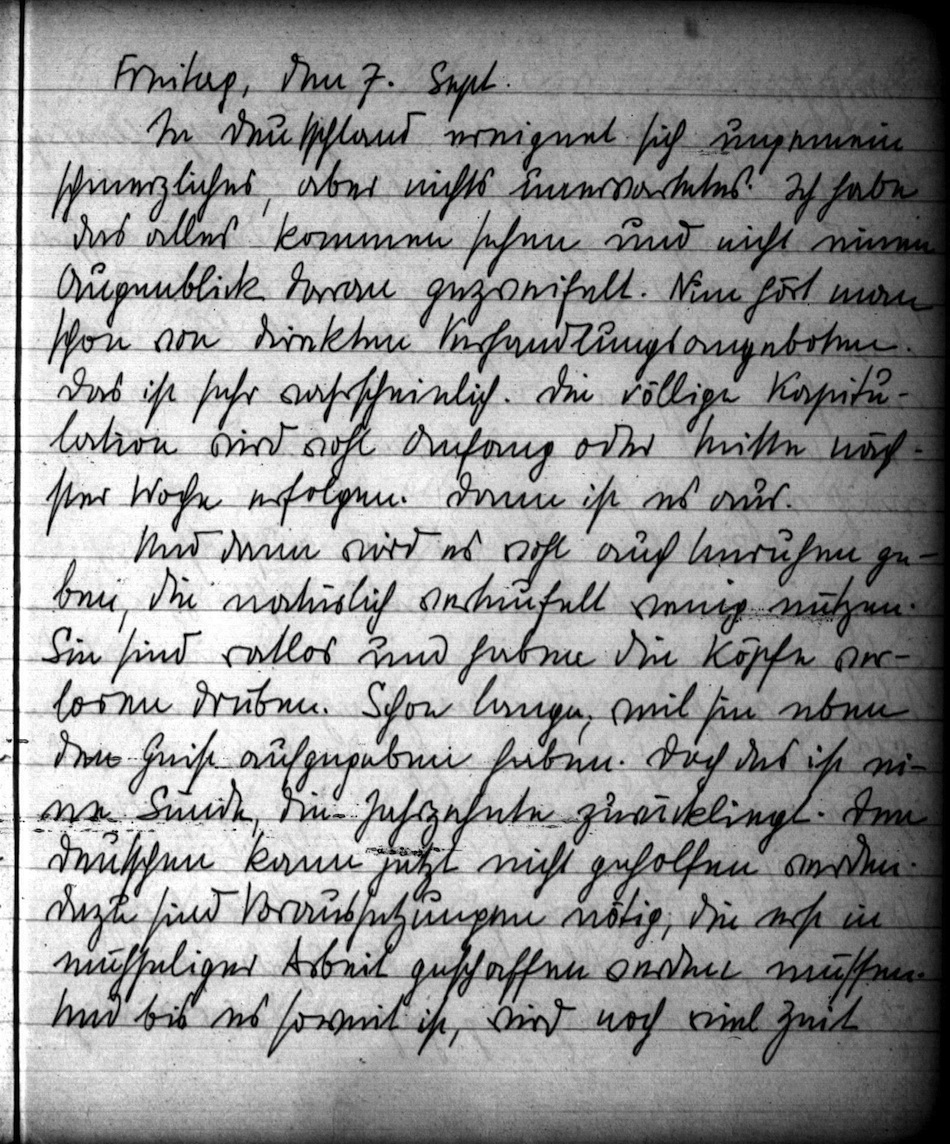 Freitag, den 7. Sept.
In Deutschland ereignet sich ungemein
schmerzliches, aber nichts unerwartetes. Ich habe
das alles kommen sehen und nicht einen
Augenblick daran gezweifelt. Nun hört man
schon von direkten Verhandlungsangeboten.
Das ist sehr wahrscheinlich. Die völlige Kapitu-
lation wird wohl Anfang oder Mitte näch-
ster Woche erfolgen. Dann ist es aus.
Und dann wird es wohl auch Unruhen ge-
ben, die natürlich verteufelt wenig nützen.
Sie sind ratlos und haben die Köpfe ver-
loren drüben. Schon lange, weil sie eben
den Geist aufgegeben haben. Doch das ist ei-
ne Sünde, die Jahrzehnte zurückliegt. Den
Deutschen kann jetzt nicht geholfen werden.
Dazu sind Voraussetzungen nötig, die erst in
mühseliger Arbeit geschaffen werden müssen.
Und bis es soweit ist, wird noch viel Zeit